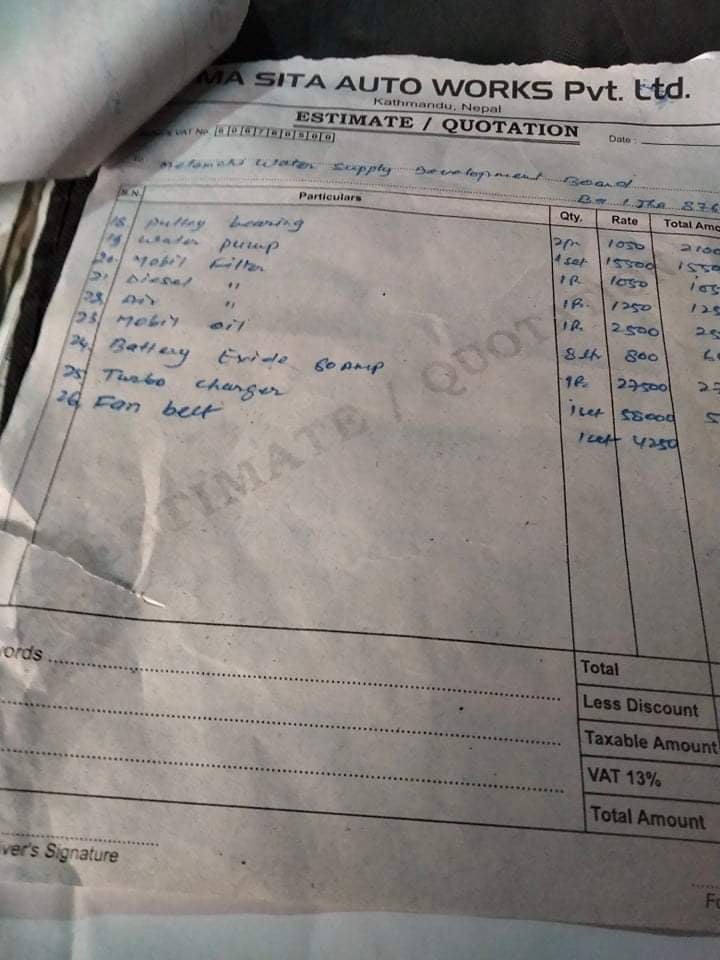 MA SITA AUTO WORKS Pvt. Ltd.
Kathmandu, Nepal
ESTIMATE / QUOTATION
VAT No. 606780500
Date :
To Melamchi Water Supply Development Board
Ba 1 Jha 876
S.N. Particulars Qty. Rate Total Amo
18. pulley bearing 2P. 1050 2100
19. Water pump 1set 15500 1550
20. Mobil Filter 1P. 1050 105
21. Diesel " 1P. 1250 125
22. Air " 1P. 2500 25
23. Mobil oil 8 ltr 800 6
24. Battery Exide 60 Amp 1P. 27500 2
25. Turbo charger 1set 58000 5
26. Fan belt 1set 4250
ESTIMATE / QUOTATION
ords
Total
Less Discount
Taxable Amount
VAT 13%
Total Amount
ver's Signature
Fo